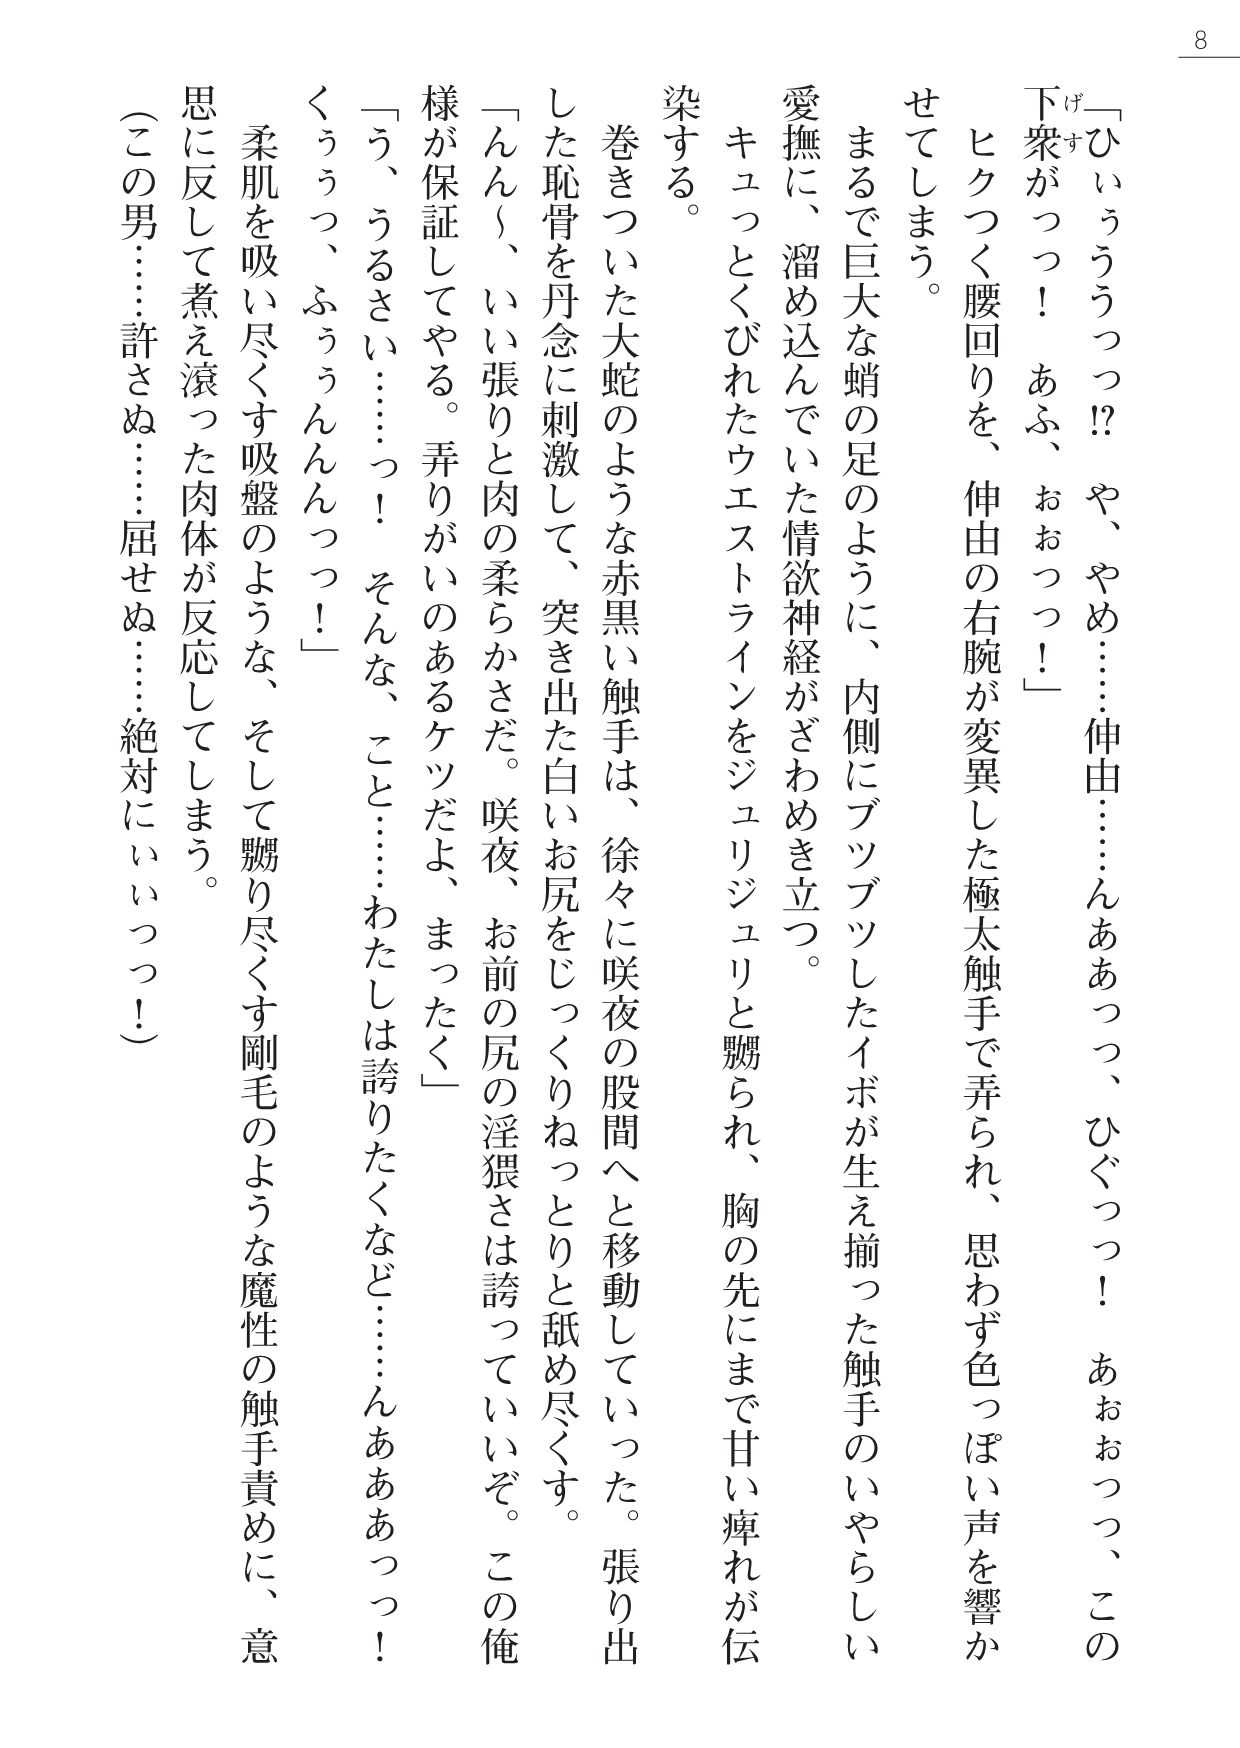 8
「ひぃぅううっっ!?　や、やめ……伸由……んああっっ、ひぐっっ！　あぉぉっっ、この
下衆がっっ！　あふ、ぉぉっっ！」
げす
　ヒクつく腰回りを、伸由の右腕が変異した極太触手で弄られ、思わず色っぽい声を響か
せてしまう。
　まるで巨大な蛸の足のように、内側にブツブツしたイボが生え揃った触手のいやらしい
愛撫に、溜め込んでいた情欲神経がざわめき立つ。
　キュっとくびれたウエストラインをジュリジュリと嬲られ、胸の先にまで甘い痺れが伝
染する。
　巻きついた大蛇のような赤黒い触手は、徐々に咲夜の股間へと移動していった。張り出
した恥骨を丹念に刺激して、突き出た白いお尻をじっくりねっとりと舐め尽くす。
「んん～、いい張りと肉の柔らかさだ。咲夜、お前の尻の淫猥さは誇っていいぞ。この俺
様が保証してやる。弄りがいのあるケツだよ、まったく」
「う、うるさい……っ！　そんな、こと……わたしは誇りたくなど……んあああっっ！
くぅぅっ、ふぅぅんんんっっ！」
　柔肌を吸い尽くす吸盤のような、そして嬲り尽くす剛毛のような魔性の触手責めに、意
思に反して煮え滾った肉体が反応してしまう。
（この男……許さぬ……屈せぬ……絶対にぃぃっっ！）